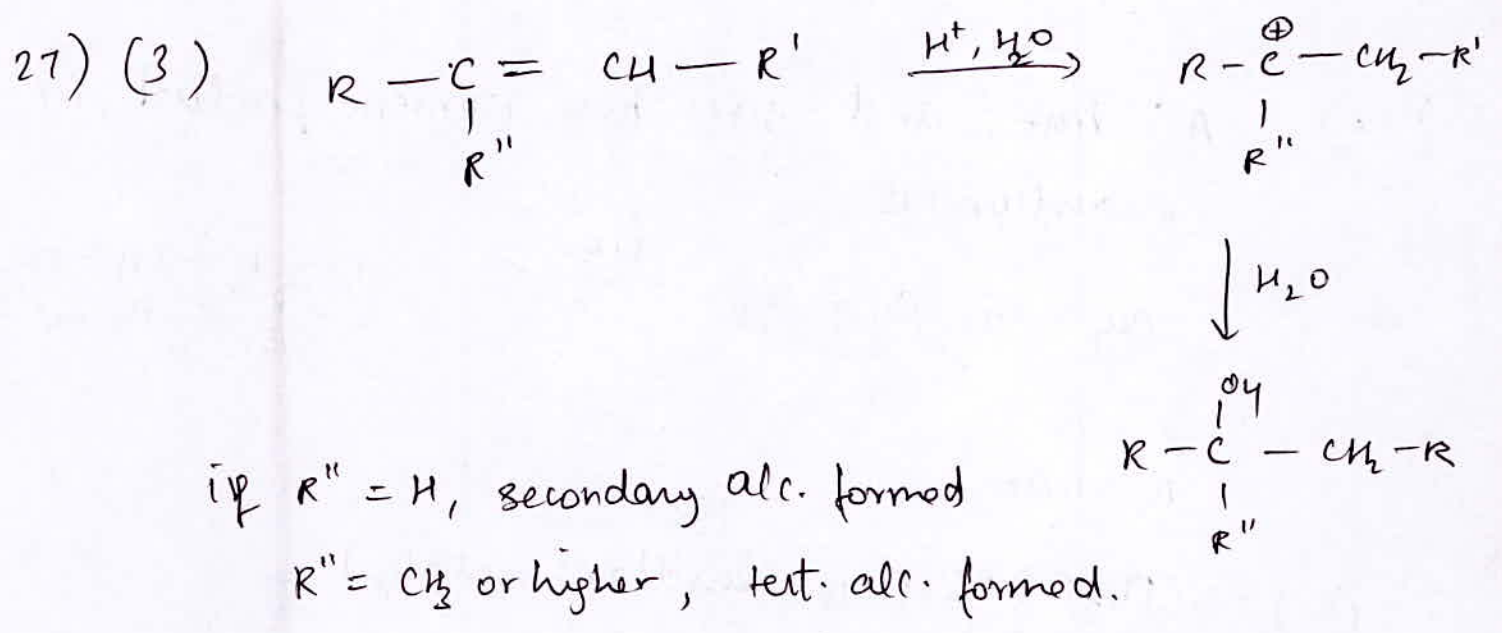 27) (3) R — C = CH — R' H⁺, H₂O R – C – CH₂ – R'
⊕
R" R"
H₂O
OH
R – C – CH₂ – R
R"
if R" = H, secondary alc. formed
R" = CH₃ or higher, tert. alc. formed.